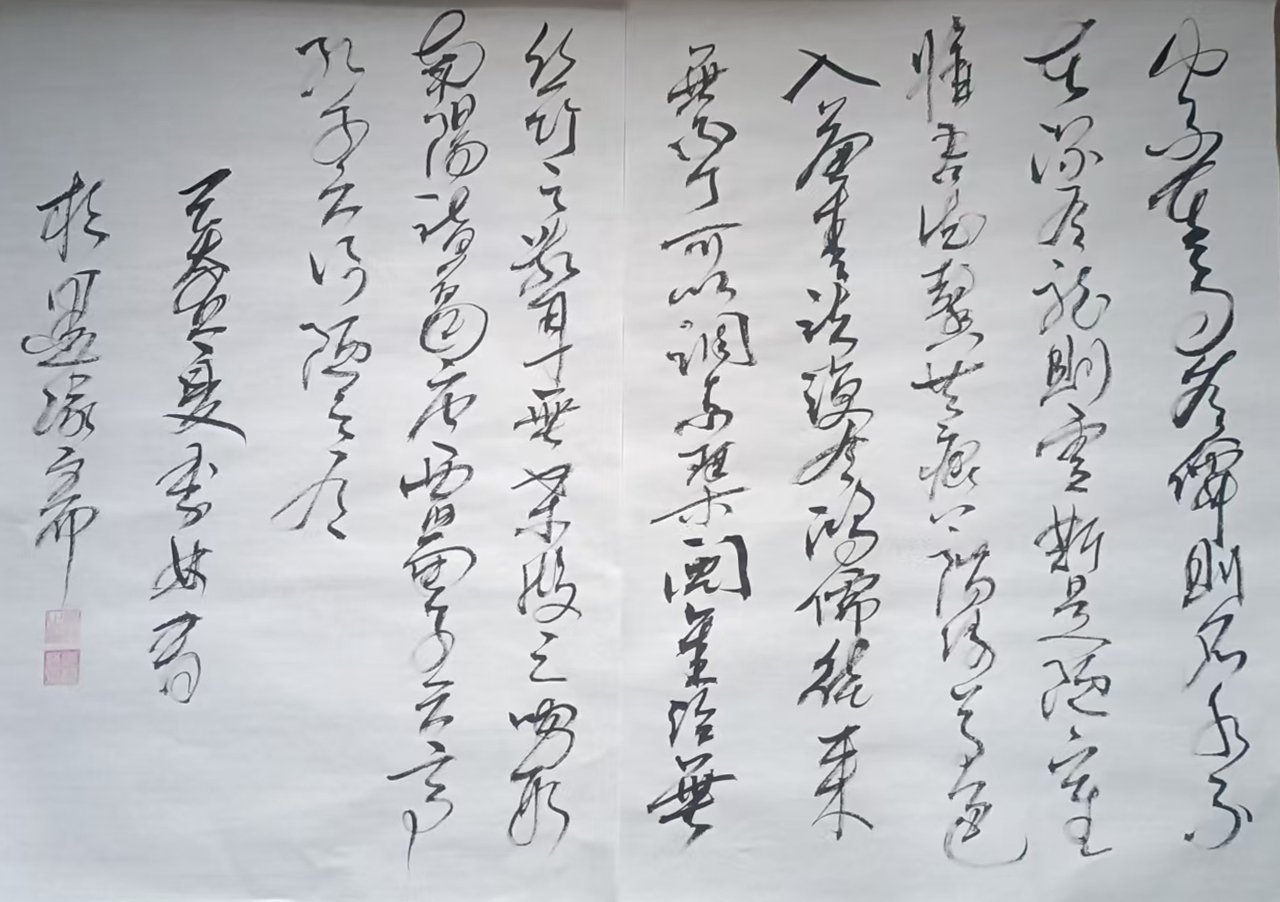 山不在高有僊則名水不
在深有龍則靈斯是陋室
惟吾德馨苔痕上階緑草色
入簾青談笑有鴻儒往来
無白丁可以調素琴閲金經無
絲竹之亂耳無案牘之勞形
南陽諸葛廬西蜀子雲亭
孔子云何陋之有
夏
於墨緣齋